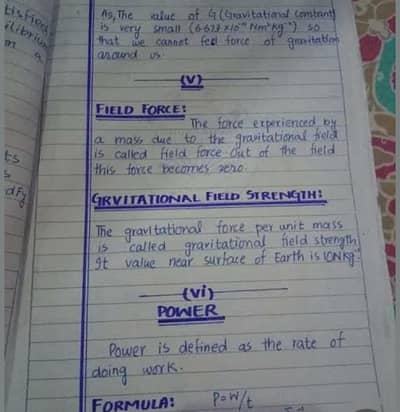 As, The value of G (Gravitational constant)
is very small (6.673 x10⁻¹¹ Nm²kg⁻²) so
that we cannot feel force of gravitation
around us.
(V)
FIELD FORCE:
The force experienced by
a mass due to the gravitational field
is called field force. Out of the field
this force becomes zero.
GRVITATIONAL FIELD STRENGTH:
The gravitational force per unit mass
is called gravitational field strength
It value near surface of Earth is 10Nkg⁻¹
(vi)
POWER
Power is defined as the rate of
doing work.
FORMULA: P=W/t